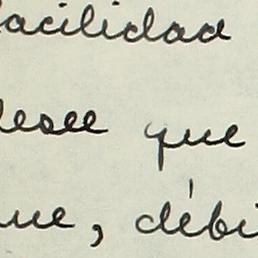 facilidad
desee que
que, débi